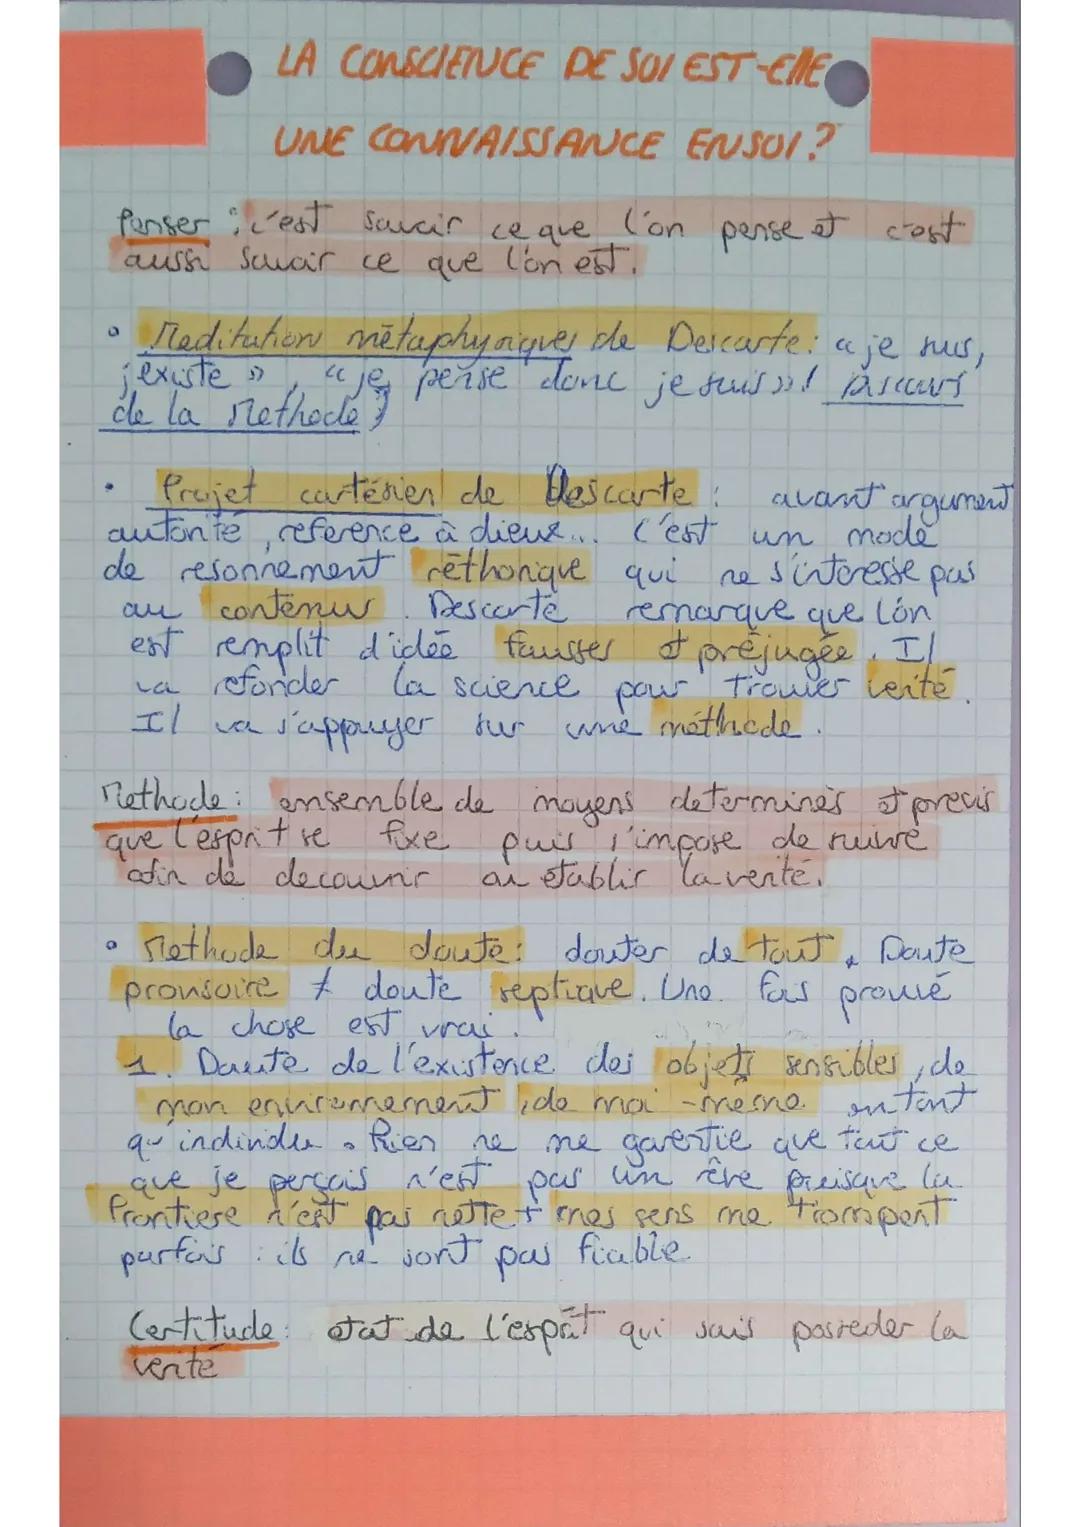 LA CONSCIENCE DE SOI EST-ELLE
UNE CONNAISSANCE EN SOI ?
Penser : c'est savoir ce que l'on pense et c'est
aussi savoir ce que l'on est.
• Meditation métaphysiques de Descarte : « je suis,
j'existe », « je pense donc je suis » ( Discours
de la Methode )
• Projet cartésien de Descarte : avant argument
autorité, reference à dieux... C'est un mode
de resonnement réthorique qui ne s'interesse pas
au contenus. Descarte remarque que l'on
est remplit d'idée fausses et préjugée. Il
va refonder la science pour trouver verité.
Il va s'appuyer sur une méthode.
Methode : ensemble de moyens determinés et precis
que l'esprit se fixe puis s'impose de suivre
afin de decouvrir ou établir la verité.
• Methode du doute : douter de tout. Doute
provisoire ≠ doute septique. Une fois prouvé
la chose est vrai.
1. Doute de l'existence des objets sensibles, de
mon environnement, de moi-même en tant
qu'individu. Rien ne me garentie que tout ce
que je perçois n'est pas un rêve puisque la
frontiere n'est pas nette + mes sens me trompent
parfois : ils ne sont pas fiable
Certitude : etat de l'esprit qui sais posseder la
verité